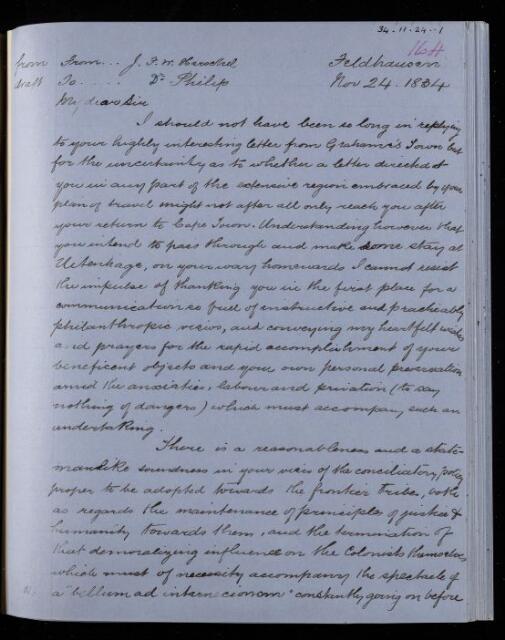 34-11-24--1
164
from From... J. F. W. Herschel Feldhausen
draft To..... Dr Philip Nov 24. 1834
My dear Sir
I should not have been so long in replying
to your highly interesting letter from Graham's Town but
for the uncertainty as to whether a letter directed to
you in any part of the extensive region embraced by your
plan of travel might not after all only reach you after
your return to Cape Town. Understanding however that
you intend to pass through and make some stay at
Uitenhage, on your way homewards I cannot resist
the impulse of thanking you in the first place for a
communication so full of instructive and practicably
philanthropic views, and conveying my heartfelt wishes
and prayers for the rapid accomplishment of your
beneficent objects and your own personal preservation
amid the anxieties, labour and privation (to say
nothing of dangers) which must accompany such an
undertaking.
There is a reasonableness and a states-
manlike soundness in your views of the conciliatory policy
proper to be adopted towards the frontier tribes, both
as regards the maintenance of principles of justice &
humanity towards them, and the termination of
that demoralizing influence on the Colonists themselves
which must of necessity accompany the spectacle of
a "bellum ad internecionem" constantly going on before